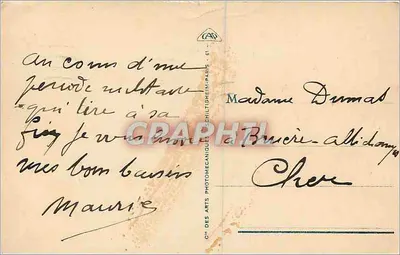 au cours d'une
periode militaire
qui tire à sa
fin je vous envoie
mes bons baisers
Maurice
CAP
Cie DES ARTS PHOTOMECANIQUES
Madame Dumas
à Bruère-Allichamps
Cher
CRAPHT